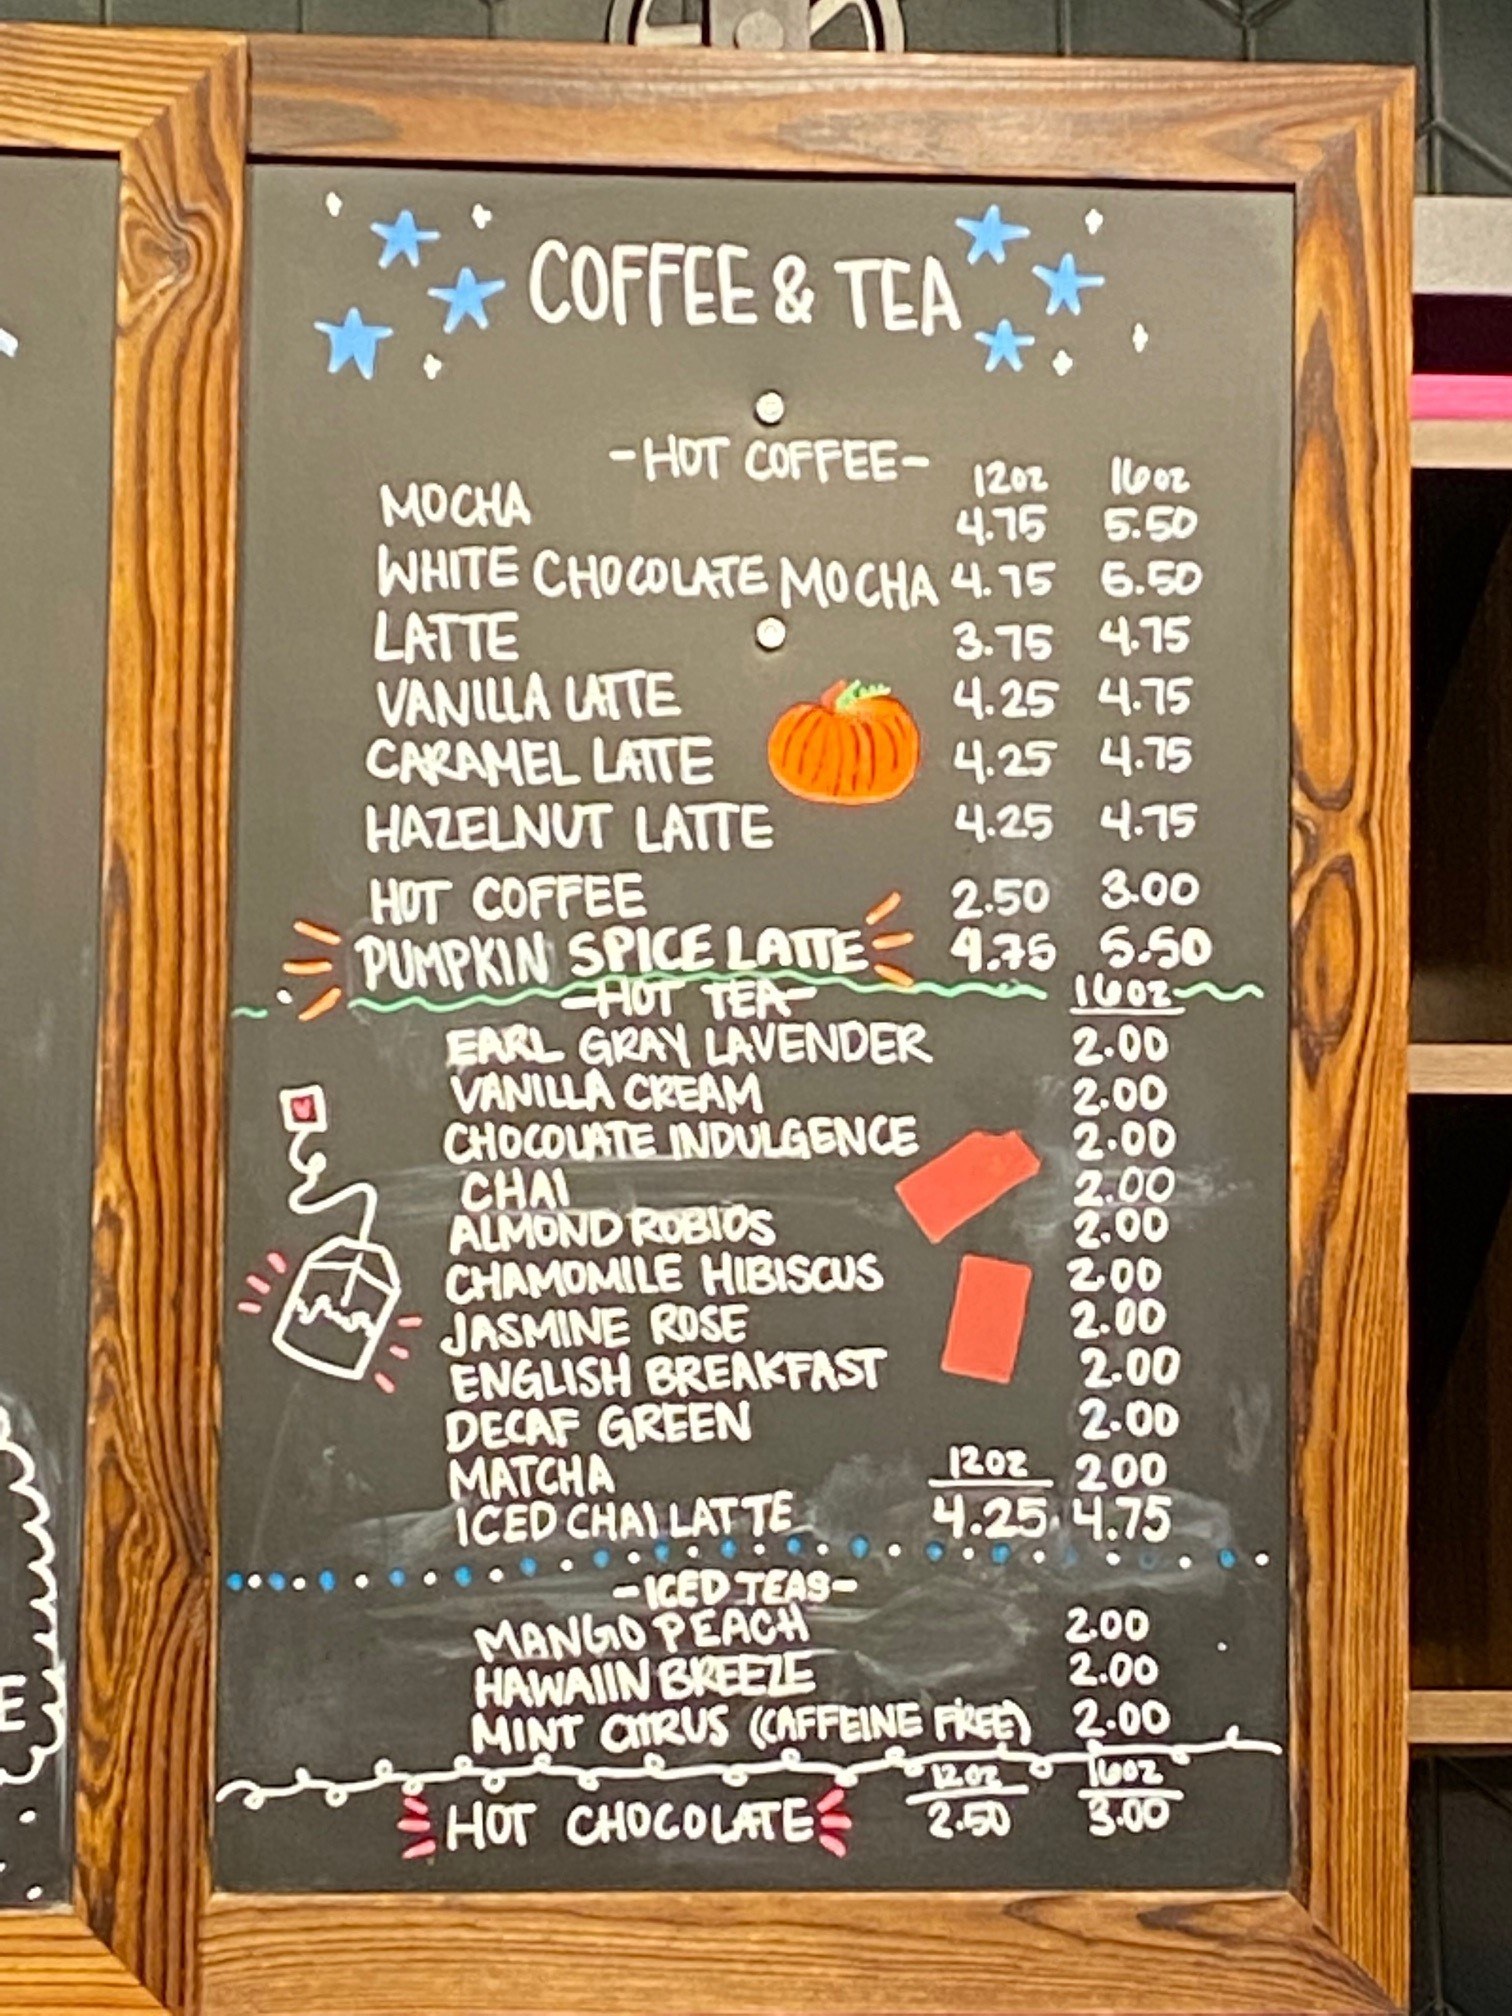 COFFEE & TEA
-HOT COFFEE-
12oz 16oz
MOCHA 4.75 5.50
WHITE CHOCOLATE MOCHA 4.75 5.50
LATTE 3.75 4.75
VANILLA LATTE 4.25 4.75
CARAMEL LATTE 4.25 4.75
HAZELNUT LATTE 4.25 4.75
HOT COFFEE 2.50 3.00
PUMPKIN SPICE LATTE 4.75 5.50
-HOT TEA- 16oz
EARL GRAY LAVENDER 2.00
VANILLA CREAM 2.00
CHOCOLATE INDULGENCE 2.00
CHAI 2.00
ALMOND ROBIOS 2.00
CHAMOMILE HIBISCUS 2.00
JASMINE ROSE 2.00
ENGLISH BREAKFAST 2.00
DECAF GREEN 2.00
MATCHA 12oz 2.00
ICED CHAI LATTE 4.25 4.75
-ICED TEAS-
MANGO PEACH 2.00
HAWAIIN BREEZE 2.00
MINT CITRUS (CAFFEINE FREE) 2.00
12oz 16oz
HOT CHOCOLATE 2.50 3.00
E